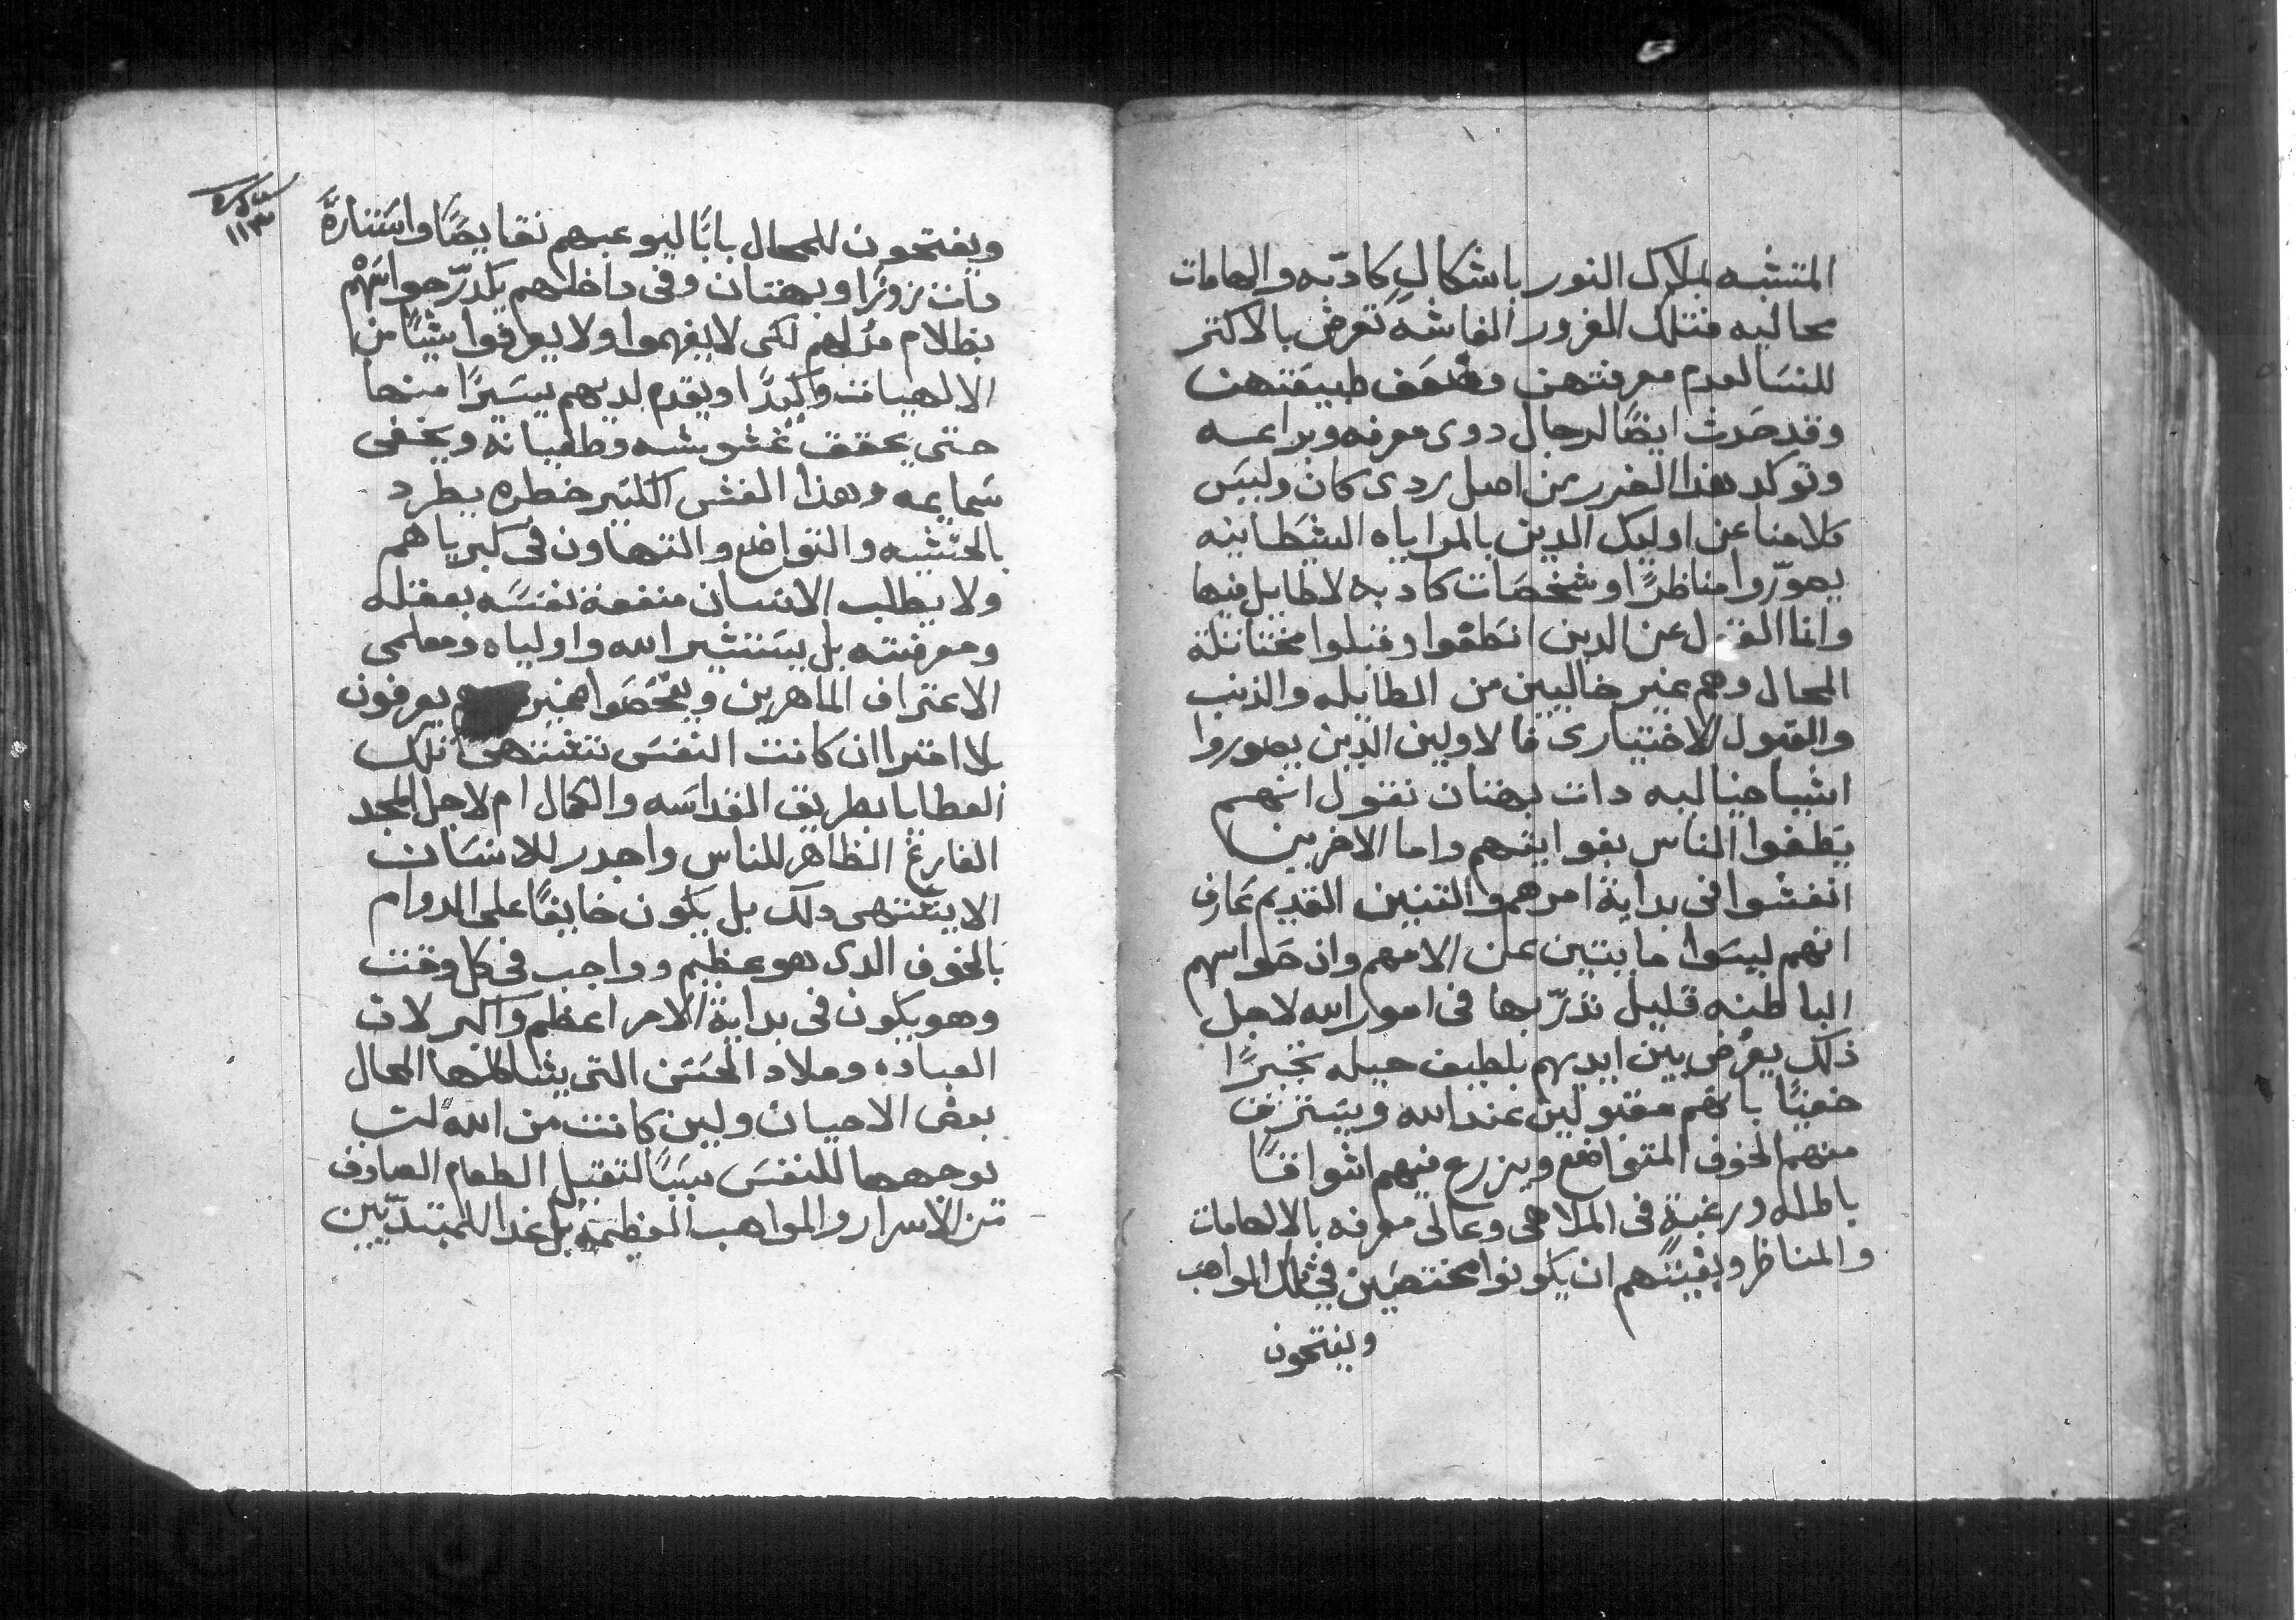 المتشبه بملاك النور باشكالٍ كادبه والهامات
محاليه فتلك الغرور الفاشه تعرض بالاكتر
للنسا لعدم معرفتهن وضعف طبيعتهن
وقد حَدث ايضًا لرجال دوى معرفه وبراعه
وتوكد هذا الضرر من اصل ردى كان وليس
كلامنا عن اوليك الدين بالمراياه الشطانيه
يصوّروا مناظرًا وشخصَات كادبه لا طايل فيها
وانا القول عن الدين انطغوا وقبلوا مخناتلة
المحال وهم غير خاليين من الطايله والذنب
والقبول الاختيارى فالاولين الذين يصوروا
اشيا خياليه دات بهتان نقول انهم
يَطغوا الناس بغوايتهم واما الاخرين
انغشوا فى بداية امرهم والتنين القديم عَارف
انهم ليسَوا مايتين عن الامهم وان حَواسهم
الباطنه قليل تدرّبها فى امور الله لاجل
ذلك يعرُض بين ايديهم بلطيف حيله تخبرًا
خفيًا بانهم مقبولين عند الله ويستنزف
منهم الخوف المتواضع ويزرع فيهم اشواقًا
بالمله ورغبةٍ فى الملاهى وعالى معرفه بالالهامات
والمناظر وبغيتهم ان يكونوا مختصَين في تلك المواهب
ويفتحون
١١٣
ويفتحون للمحال بابًا ليوعبهم نقايصًا واستنارةً
دات زورًا وبهتان وفى داخلهم يدرّجوا سَهم
بظلام مدلهم لكى لا يفهموا ولا يعرفوا شيًا من
الالهيات واكيدًا ويقدم لديهم يسَيرًا منها
حتى يحقق غشويشه وطغيانه ويخفى
سَمايمه وهذا الغش الكتير خطره يطرد
بالخشيه والتواضع والتهاون فى كبرياهم
ولا يطلب الانسان منفعة نفسَه بعقله
ومعرفته بل يستشير الله واولياه ومعلمى
الاعتراف الماهرين ويفحَصَوا يعرفون
بلا افترا ان كانت النفسَ تشتهى تلك
العطايا بطريق القداسَه والكمال ام لاجل المجد
الفارغ الظاهر للناس واجدر للانسَان
الا يشتهى دلك بل يكون خايفًا على الدوام
بالخوف الدى هو عظيم وواجب فى كل وقت
وهو يكون فى بداية الامر اعظم واكبر لان
العباده وملاد الحسَن التى يشاكلها المحال
بعض الاحيان ولين كانت من الله لت
يوجهها للنفسَ سَببًا لتقبل الطعام الصادق
من الاسرار والمواهب العظيمه بل غدا للمبتديّين